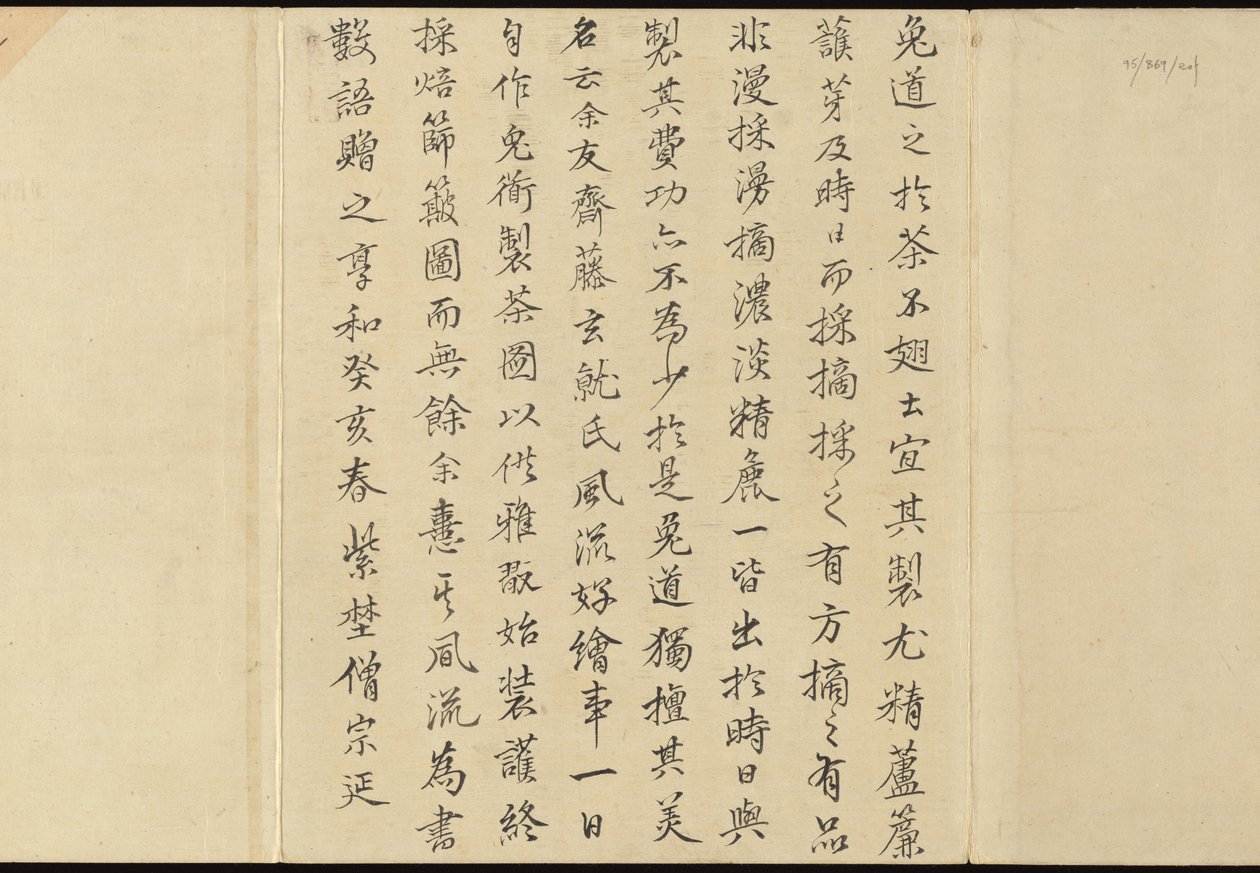 兔道之於茶不翅土宜其製尤精蘆簾
護芽及時日而採摘採之有方摘之有品
非漫採漫摘濃淡精麁一皆出於時日與
製其費功亦不為少於是兔道獨擅其美
名云余友齋藤玄就氏風流好繪事一日
自作兔衜製茶圖以供雅翫始裝護終
採焙篩簸圖而無餘余憙其風流為書
數語贈之享和癸亥春紫埜僧宗延